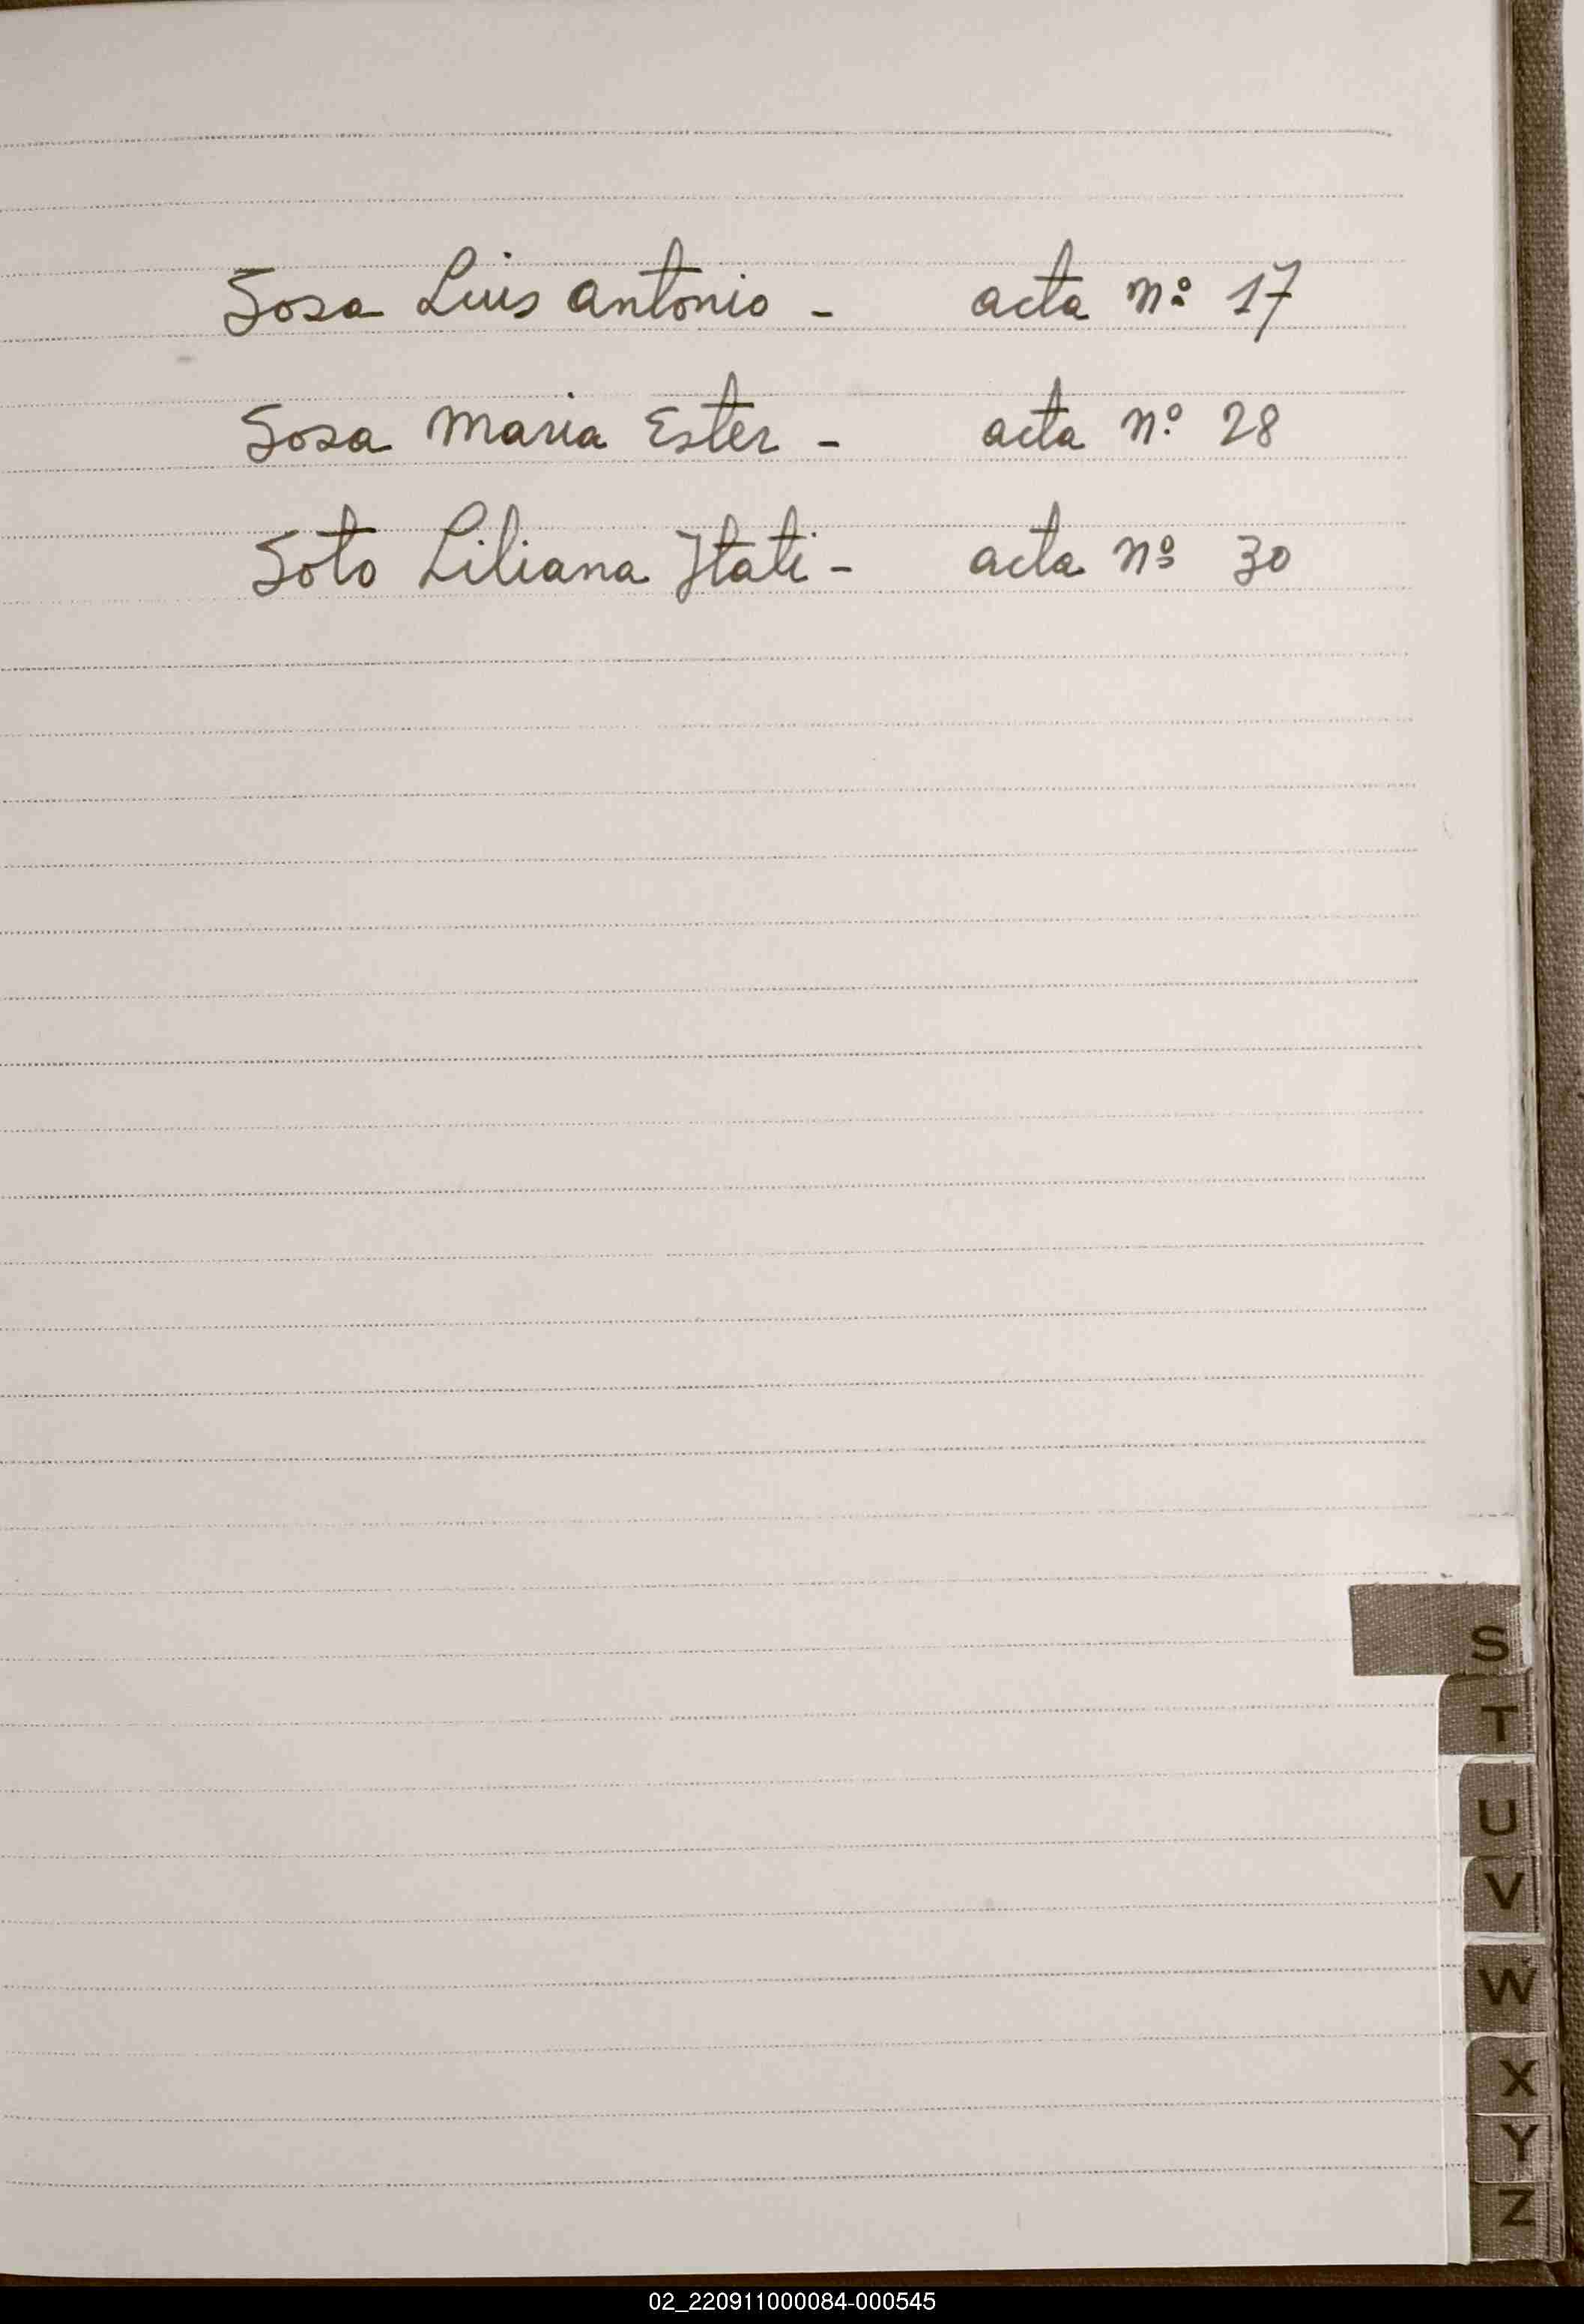 Sosa Luis Antonio - acta nº 17
Sosa Maria Ester - acta nº 28
Soto Liliana Itati - acta nº 30
S
T
U
V
W
X
Y
Z
02_220911000084-000545